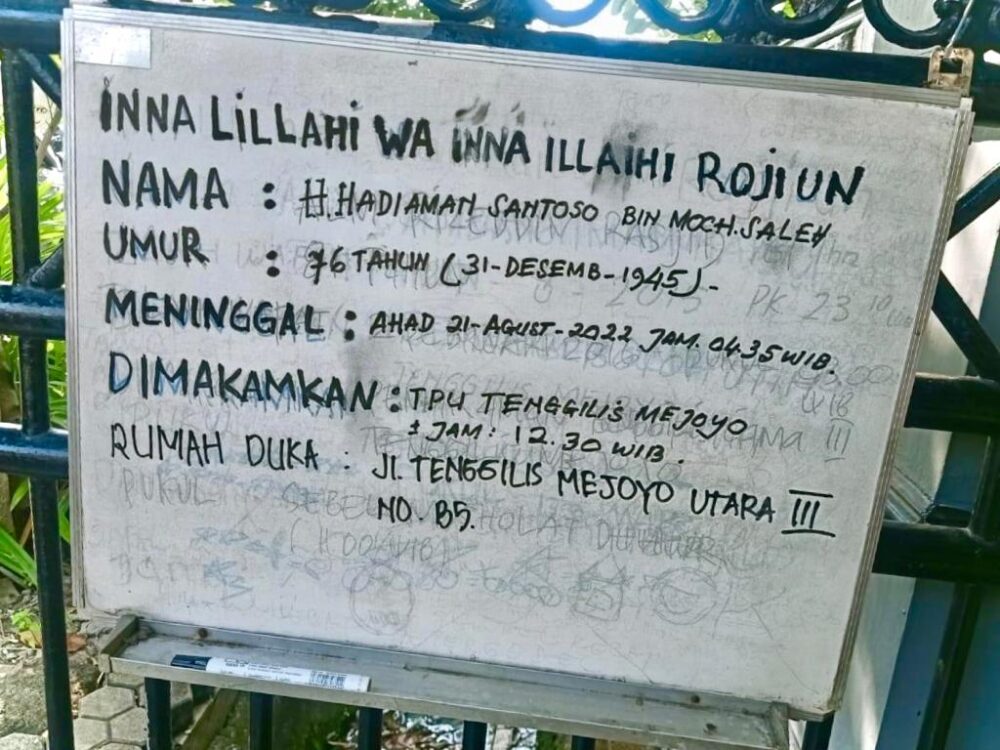 INNA LILLAHI WA INNA ILLAIHI ROJIUN
NAMA : H. HADIAMAN SANTOSO BIN MOCH. SALEH
UMUR : 76 TAHUN (31-DESEMB-1945)-
MENINGGAL : AHAD 21-AGUST-2022 JAM. 04.35 WIB.
DIMAKAMKAN : TPU TENGGILIS MEJOYO
± JAM : 12.30 WIB.
RUMAH DUKA : Jl. TENGGILIS MEJOYO UTARA III
NO. B5.